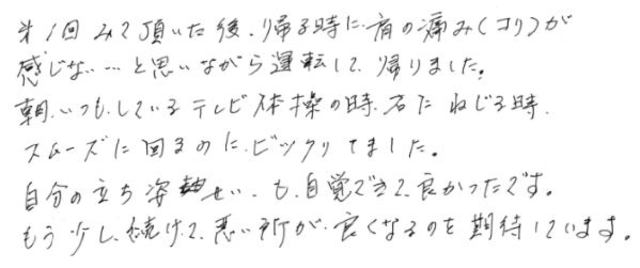 第1回 みて頂いた後、帰る時に肩の痛み(コリ)が
感じない…と思いながら運転して、帰りました。
朝、いつもしているテレビ体操の時、右にねじる時、
スムーズに回るのに、ビックリてました。
自分の立ち姿せい、も、自覚できて、良かったです。
もう少し、続けて、悪い所が、良くなるのを期待しています。